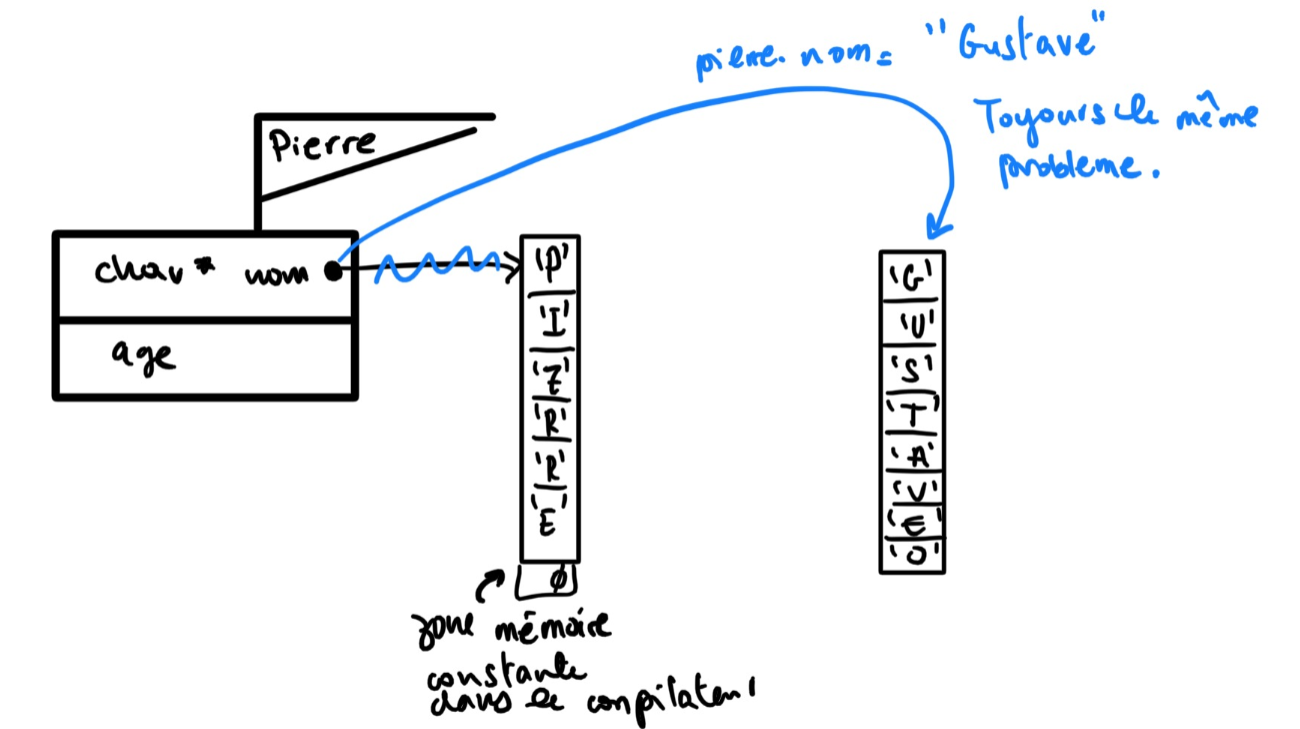 pierre.nom = "Gustave"
Toujours le même
problème.
Pierre
char* nom
age
'P'
'I'
'E'
'R'
'R'
'E'
ø
zone mémoire
constante
dans le compilateur
'G'
'U'
'S'
'T'
'A'
'V'
'E'
'0'